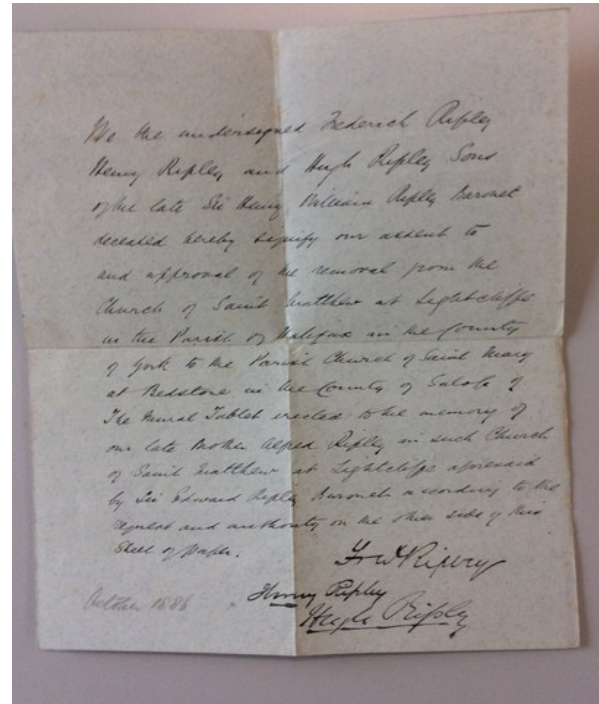 We the undersigned Frederick Ripley
Henry Ripley and Hugh Ripley Sons
of the late Sir Henry William Ripley Baronet
deceased hereby signify our assent to
and approval of the removal from the
Church of Saint Matthew at Lightcliffe
in the Parish of Halifax in the County
of York to the Parish Church of Saint Mary
at Bedstone in the County of Salop of
The Mural Tablet erected to the memory of
our late Brother Alfred Ripley in such Church
of Saint Matthew at Lightcliffe aforesaid
by Sir Edward Ripley Baronet according to the
request and authority on the other side of this
Sheet of paper.
Fred Ripley
Henry Ripley
Hugh Ripley
October 1886